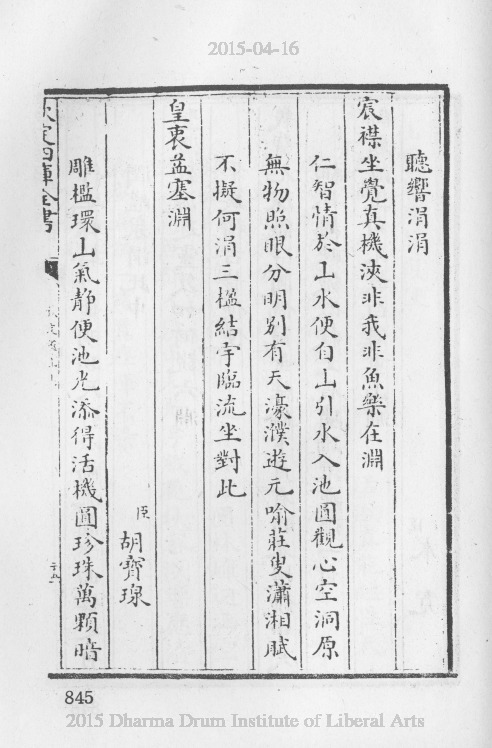 2015-04-16
聽響涓涓
宸襟坐覺真機浹非我非魚樂在淵
仁智情於山水便自山引水入池圓觀心空洞原
無物照眼分明別有天濠濮遊元喻莊叟瀟湘賦
不擬何涓三楹結宇臨流坐對此
皇衷益塞淵
臣胡寶瑔
雕檻環山氣靜便池光添得活機圓珍珠萬顆暗
欽定四庫全書
845
2015 Dharma Drum Institute of Liberal Arts